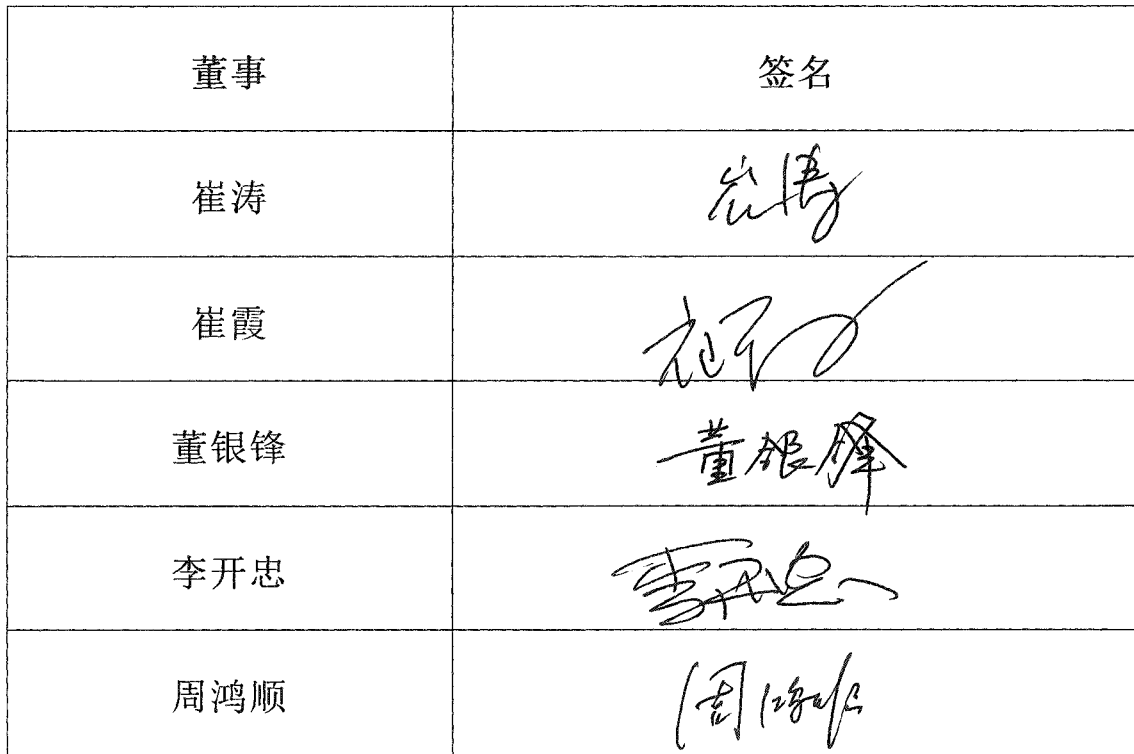 董事 签名
崔涛 崔涛
崔霞 崔霞
董银锋 董银锋
李开忠 李开忠
周鸿顺 周鸿顺